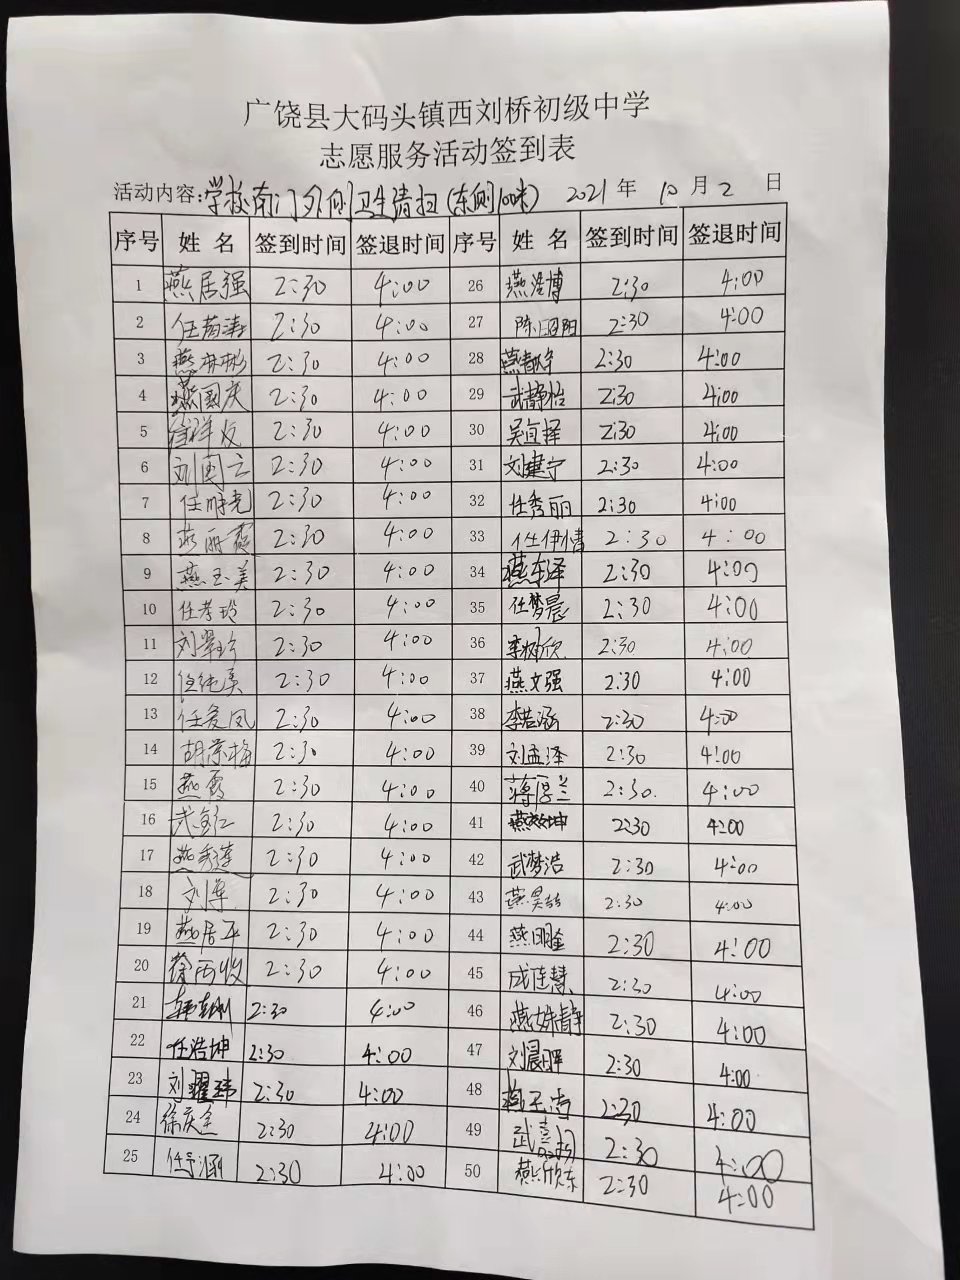 广饶县大码头镇西刘桥初级中学
志愿服务活动签到表
活动内容:学校南门外侧卫生清扫(东侧100米) 2021年10月2日
序号 姓名 签到时间 签退时间 序号 姓名 签到时间 签退时间
1 燕居强 2:30 4:00 26 燕浩博 2:30 4:00
2 2:30 4:00 27 陈昭阳 2:30 4:00
3 燕林彬 2:30 4:00 28 燕春峰 2:30 4:00
4 燕国庆 2:30 4:00 29 武静怡 2:30 4:00
5 徐祥友 2:30 4:00 30 吴宜择 2:30 4:00
6 2:30 4:00 31 刘建宁 2:30 4:00
7 任时光 2:30 4:00 32 任秀丽 2:30 4:00
8 燕丽霞 2:30 4:00 33 任伊倩 2:30 4:00
9 燕玉美 2:30 4:00 34 燕车泽 2:30 4:00
10 任孝玲 2:30 4:00 35 任梦晨 2:30 4:00
11 刘翠珍 2:30 4:00 36 李树欣 2:30 4:00
12 任纯英 2:30 4:00 37 燕文强 2:30 4:00
13 任爱凤 2:30 4:00 38 李若涵 2:30 4:00
14 胡荣梅 2:30 4:00 39 刘孟泽 2:30 4:00
15 燕霞 2:30 4:00 40 蒋厚兰 2:30 4:00
16 2:30 4:00 41 2:30 4:00
17 燕秀莲 2:30 4:00 42 武梦浩 2:30 4:00
18 刘军 2:30 4:00 43 2:30 4:00
19 燕居平 2:30 4:00 44 2:30 4:00
20 徐丙收 2:30 4:00 45 成佳慧 2:30 4:00
21 2:30 4:00 46 燕姝静 2:30 4:00
22 任浩坤 2:30 4:00 47 刘晨晖 2:30 4:00
23 刘耀玮 2:30 4:00 48 2:30 4:00
24 徐庆全 2:30 4:00 49 2:30 4:00
25 任予涵 2:30 4:00 50 燕欣东 2:30 4:00